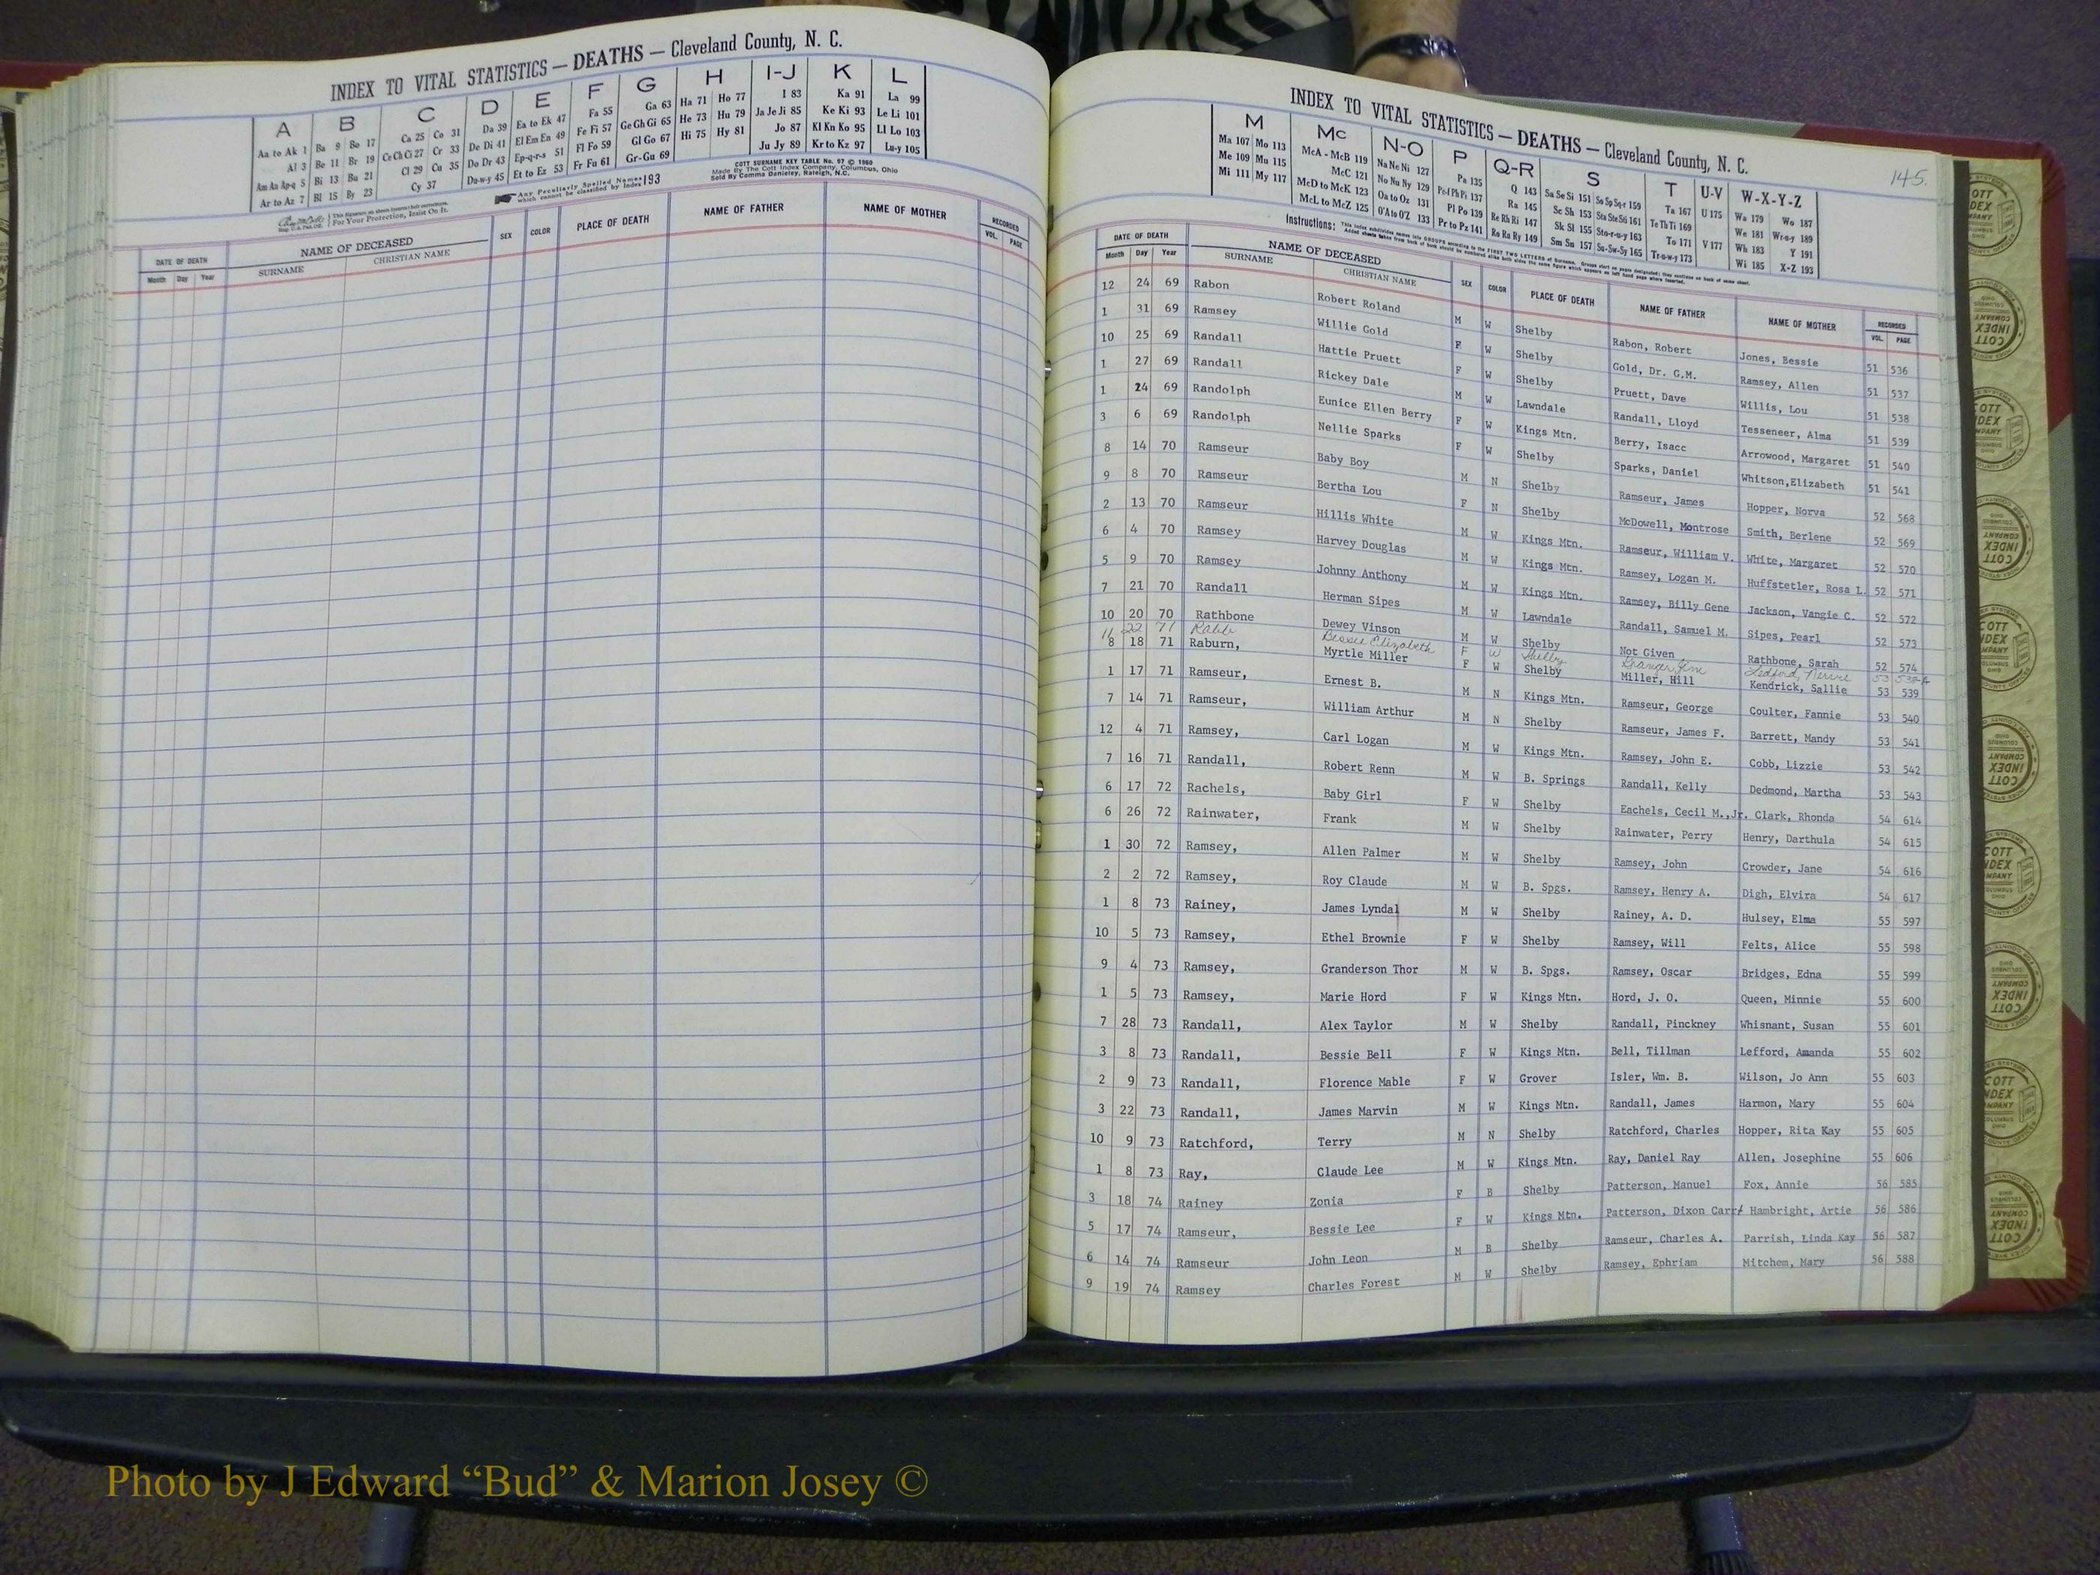 INDEX TO VITAL STATISTICS — DEATHS — Cleveland County, N. C.
A B C D E F G H I-J K L
Aa to Ak 1 Ba 9 Bo 17 Ca 25 Co 31 Da 39 Ea to Ek 47 Fa 55 Ga 63 Ha 71 Ho 77 I 83 Ka 91 La 99
Al 3 Be 11 Br 19 Ce Ch Ci 27 Cr 33 De Di 41 El Em En 49 Fe Fi 57 Ge Gh Gi 65 He 73 Hu 79 Ja Je Ji 85 Ke Ki 93 Le Li 101
Am An Ap-q 5 Bi 13 Bu 21 Cl 29 Cu 35 Do Dr 43 Ep-q-r-s 51 Fl Fo 59 Gl Go 67 Hi 75 Hy 81 Jo 87 Kl Kn Ko 95 Ll Lo 103
Ar to Az 7 Bl 15 By 23 Cy 37 Du-w-y 45 Et to Ez 53 Fr Fu 61 Gr-Gu 69 Ju Jy 89 Kr to Kz 97 Lu-y 105
For Your Protection, Insist On It.
Any Peculiarly Spelled Names which cannot be classified by Index 193
COTT SURNAME KEY TABLE No. 97 © 1960
Made By The Cott Index Company, Columbus, Ohio
Sold By Comma Danieley, Raleigh, N.C.
DATE OF DEATH NAME OF DECEASED SEX COLOR PLACE OF DEATH NAME OF FATHER NAME OF MOTHER RECORDED
Month Day Year SURNAME CHRISTIAN NAME VOL. PAGE
INDEX TO VITAL STATISTICS — DEATHS — Cleveland County, N. C.
145.
M Mc N-O P Q-R S T U-V W-X-Y-Z
Ma 107 Mo 113 McA - McB 119 Na Ne Ni 127 Pa 135 Q 143 Sa Se Si 151 So Sp Sq-r 159 Ta 167 U 175 Wa 179 Wo 187
Me 109 Mu 115 McC 121 No Nu Ny 129 Pe-f Ph Pi 137 Ra 145 Sc Sh 153 Sta Ste Sti 161 Te Th Ti 169 We 181 Wr-u-y 189
Mi 111 My 117 McD to McK 123 Oa to Oz 131 Pl Po 139 Re Rh Ri 147 Sk Sl 155 Sto-r-u-y 163 To 171 V 177 Wh 183 Y 191
McL to McZ 125 O'A to O'Z 133 Pr to Pz 141 Ro Ru Ry 149 Sm Sn 157 Su-Sw-Sy 165 Tr-u-w-y 173 Wi 185 X-Z 193
Instructions: This index subdivides names into GROUPS according to the FIRST TWO LETTERS of Surname.
DATE OF DEATH NAME OF DECEASED SEX COLOR PLACE OF DEATH NAME OF FATHER NAME OF MOTHER RECORDED
Month Day Year SURNAME CHRISTIAN NAME VOL. PAGE
12 24 69 Rabon Robert Roland M W Shelby Rabon, Robert Jones, Bessie 51 536
1 31 69 Ramsey Willie Gold F W Shelby Gold, Dr. G.M. Ramsey, Allen 51 537
10 25 69 Randall Hattie Pruett F W Shelby Pruett, Dave Willis, Lou 51 538
1 27 69 Randall Rickey Dale M W Lawndale Randall, Lloyd Tesseneer, Alma 51 539
1 24 69 Randolph Eunice Ellen Berry F W Kings Mtn. Berry, Isacc Arrowood, Margaret 51 540
3 6 69 Randolph Nellie Sparks F W Shelby Sparks, Daniel Whitson,Elizabeth 51 541
8 14 70 Ramseur Baby Boy M N Shelby Ramseur, James Hopper, Norva 52 568
9 8 70 Ramseur Bertha Lou F N Shelby McDowell, Montrose Smith, Berlene 52 569
2 13 70 Ramseur Hillis White M W Kings Mtn. Ramseur, William V. White, Margaret 52 570
6 4 70 Ramsey Harvey Douglas M W Kings Mtn. Ramsey, Logan M. Huffstetler, Rosa L. 52 571
5 9 70 Ramsey Johnny Anthony M W Kings Mtn. Ramsey, Billy Gene Jackson, Vangie C. 52 572
7 21 70 Randall Herman Sipes M W Lawndale Randall, Samuel M. Sipes, Pearl 52 573
10 20 70 Rathbone Dewey Vinson M W Shelby Not Given Rathbone, Sarah 52 574
11 22 71 Rabb Bessie Elizabeth F W Shelby Ledford, 53 538A
8 18 71 Raburn, Myrtle Miller F W Shelby Miller, Hill Kendrick, Sallie 53 539
1 17 71 Ramseur, Ernest B. M N Kings Mtn. Ramseur, George Coulter, Fannie 53 540
7 14 71 Ramseur, William Arthur M N Shelby Ramseur, James F. Barrett, Mandy 53 541
12 4 71 Ramsey, Carl Logan M W Kings Mtn. Ramsey, John E. Cobb, Lizzie 53 542
7 16 71 Randall, Robert Renn M W B. Springs Randall, Kelly Dedmond, Martha 53 543
6 17 72 Rachels, Baby Girl F W Shelby Eachels, Cecil M.,Jr. Clark, Rhonda 54 614
6 26 72 Rainwater, Frank M W Shelby Rainwater, Perry Henry, Darthula 54 615
1 30 72 Ramsey, Allen Palmer M W Shelby Ramsey, John Crowder, Jane 54 616
2 2 72 Ramsey, Roy Claude M W B. Spgs. Ramsey, Henry A. Digh, Elvira 54 617
1 8 73 Rainey, James Lyndal M W Shelby Rainey, A. D. Hulsey, Elma 55 597
10 5 73 Ramsey, Ethel Brownie F W Shelby Ramsey, Will Felts, Alice 55 598
9 4 73 Ramsey, Granderson Thor M W B. Spgs. Ramsey, Oscar Bridges, Edna 55 599
1 5 73 Ramsey, Marie Hord F W Kings Mtn. Hord, J. O. Queen, Minnie 55 600
7 28 73 Randall, Alex Taylor M W Shelby Randall, Pinckney Whisnant, Susan 55 601
3 8 73 Randall, Bessie Bell F W Kings Mtn. Bell, Tillman Lefford, Amanda 55 602
2 9 73 Randall, Florence Mable F W Grover Isler, Wm. B. Wilson, Jo Ann 55 603
3 22 73 Randall, James Marvin M W Kings Mtn. Randall, James Harmon, Mary 55 604
10 9 73 Ratchford, Terry M N Shelby Ratchford, Charles Hopper, Rita Kay 55 605
1 8 73 Ray, Claude Lee M W Kings Mtn. Ray, Daniel Ray Allen, Josephine 55 606
3 18 74 Rainey Zonia F B Shelby Patterson, Manuel Fox, Annie 56 585
5 17 74 Ramseur, Bessie Lee F W Kings Mtn. Patterson, Dixon Carr/ Hambright, Artie 56 586
6 14 74 Ramseur John Leon M B Shelby Ramseur, Charles A. Parrish, Linda Kay 56 587
9 19 74 Ramsey Charles Forest M W Shelby Ramsey, Ephriam Mitchem, Mary 56 588
Photo by J Edward “Bud” & Marion Josey ©